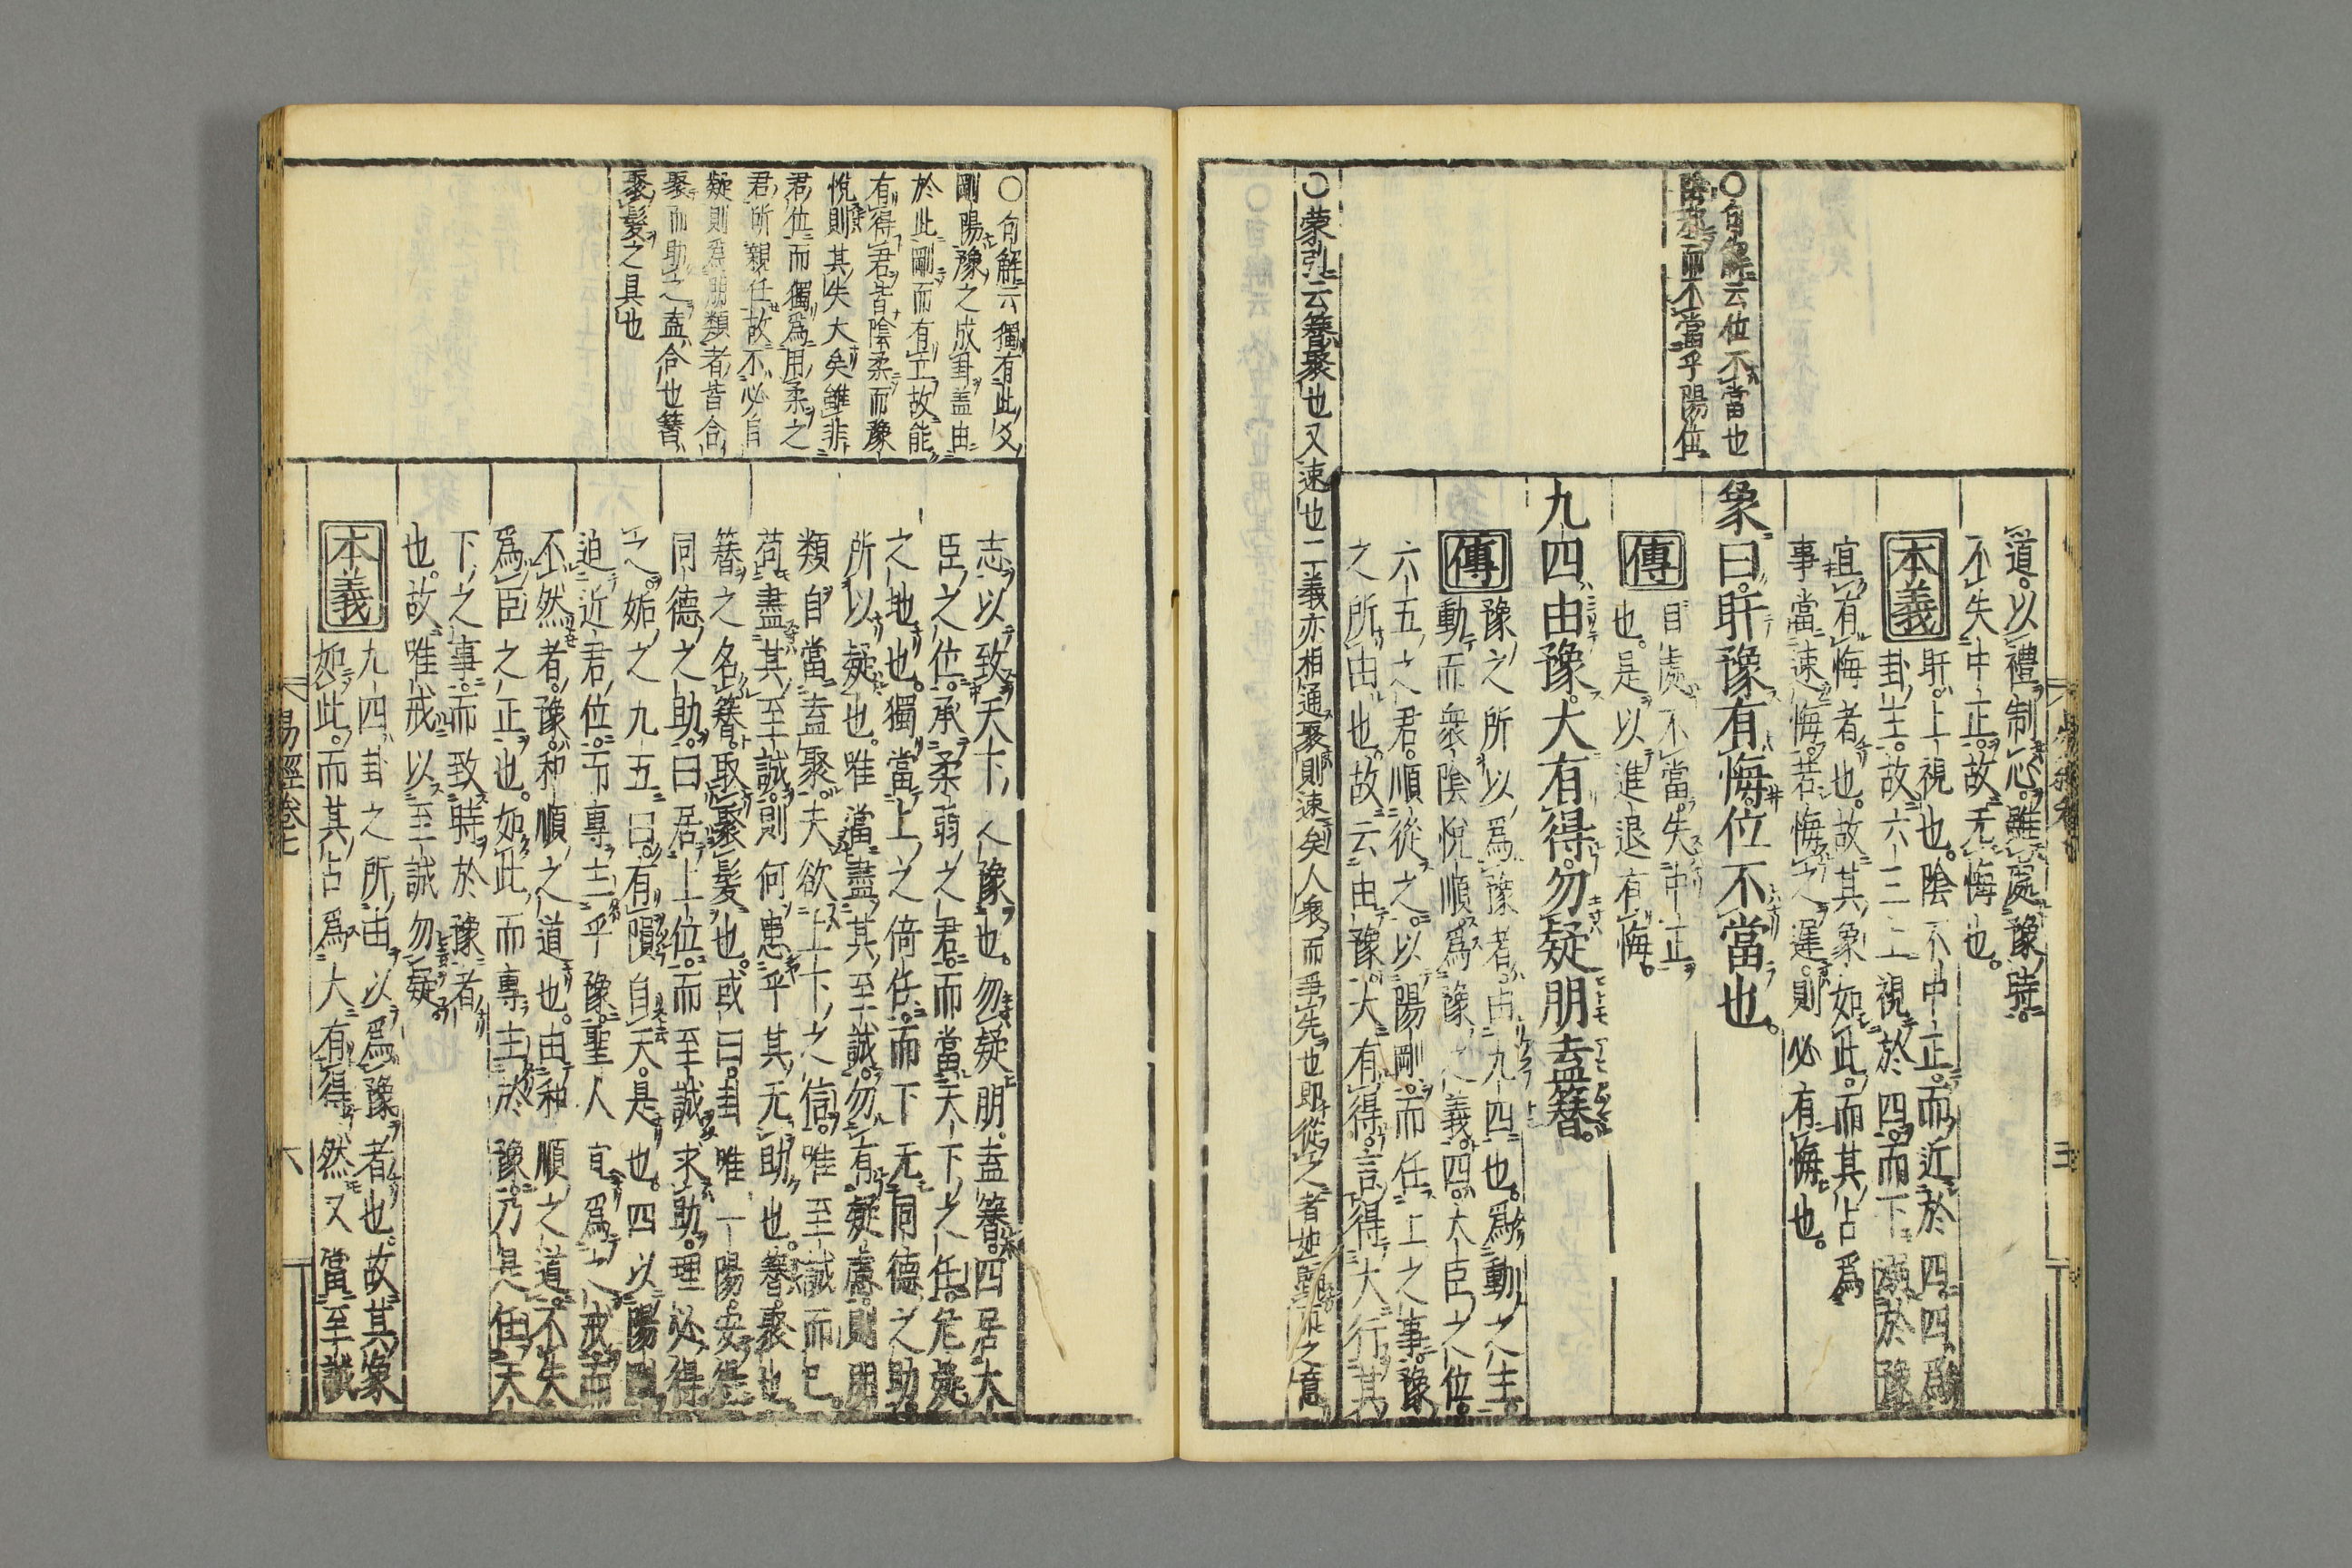 ○句解云位不當也
陰柔而不當乎陽位
道。以禮制心。雖處豫時。
不失中正。故无悔也。
本義
盱。上視也。陰不中正。而近於四。四爲
卦主。故六三上視於四。而下溺於豫
宜有悔者也。故其象如此。而其占爲
事當速悔。若悔之遲。則必有悔也。
象曰。盱豫有悔。位不當也。
傳
自處不當。失中正
也。是以進退有悔。
九四。由豫。大有得。勿疑朋盍簪。
傳
豫之所以爲豫者。由九四也。爲動之主
動而衆陰悅順。爲豫之義。四。大臣之位。
六五之君。順從之。以陽剛。而任上之事。豫
之所由也。故云由豫。大有得。言得大行其
○蒙引云簪聚也又速也二義亦相通聚則速矣人衆而爭先也即從之者如之意
○句解云獨有此爻
剛陽豫之成卦蓋由
於此剛而有立故能
有得君皆陰柔而豫
悅則其失大矣雖非
君位而獨爲用柔之
君所親任故不必自
疑則爲朋類者皆合
聚而助之盍合也簪
聚髮之具也
志以致天下人豫也。勿疑朋。盍簪。四居大
臣之位。承柔弱之君。而當天下之任。危疑
之地也。獨當上之倚任。而下无同德之助。
所以疑也。唯當盡其至誠。勿有疑慮。則朋
類自當盍聚。夫欲上下之信。唯至誠而已。
苟盡其至誠。則何患乎其无助也。簪聚也
簪之名簪。取聚髮也。或曰。卦唯一陽。安得
同德之助。曰。居上位。而至誠求助。理必得
之。姤之九五曰。有隕自天。是也。四以陽剛
迫近君位。而專主乎豫。聖人宜爲之戒。而
不然者。豫。和順之道也。由和順之道。不失
爲臣之正也。如此而專主於豫。乃是任天
下之事。而致時於豫者
也。故唯戒以至誠勿疑。
本義
九四卦之所由以爲豫者也。故其象
如此。而其占爲大有得。然又當至誠
易經卷七
六